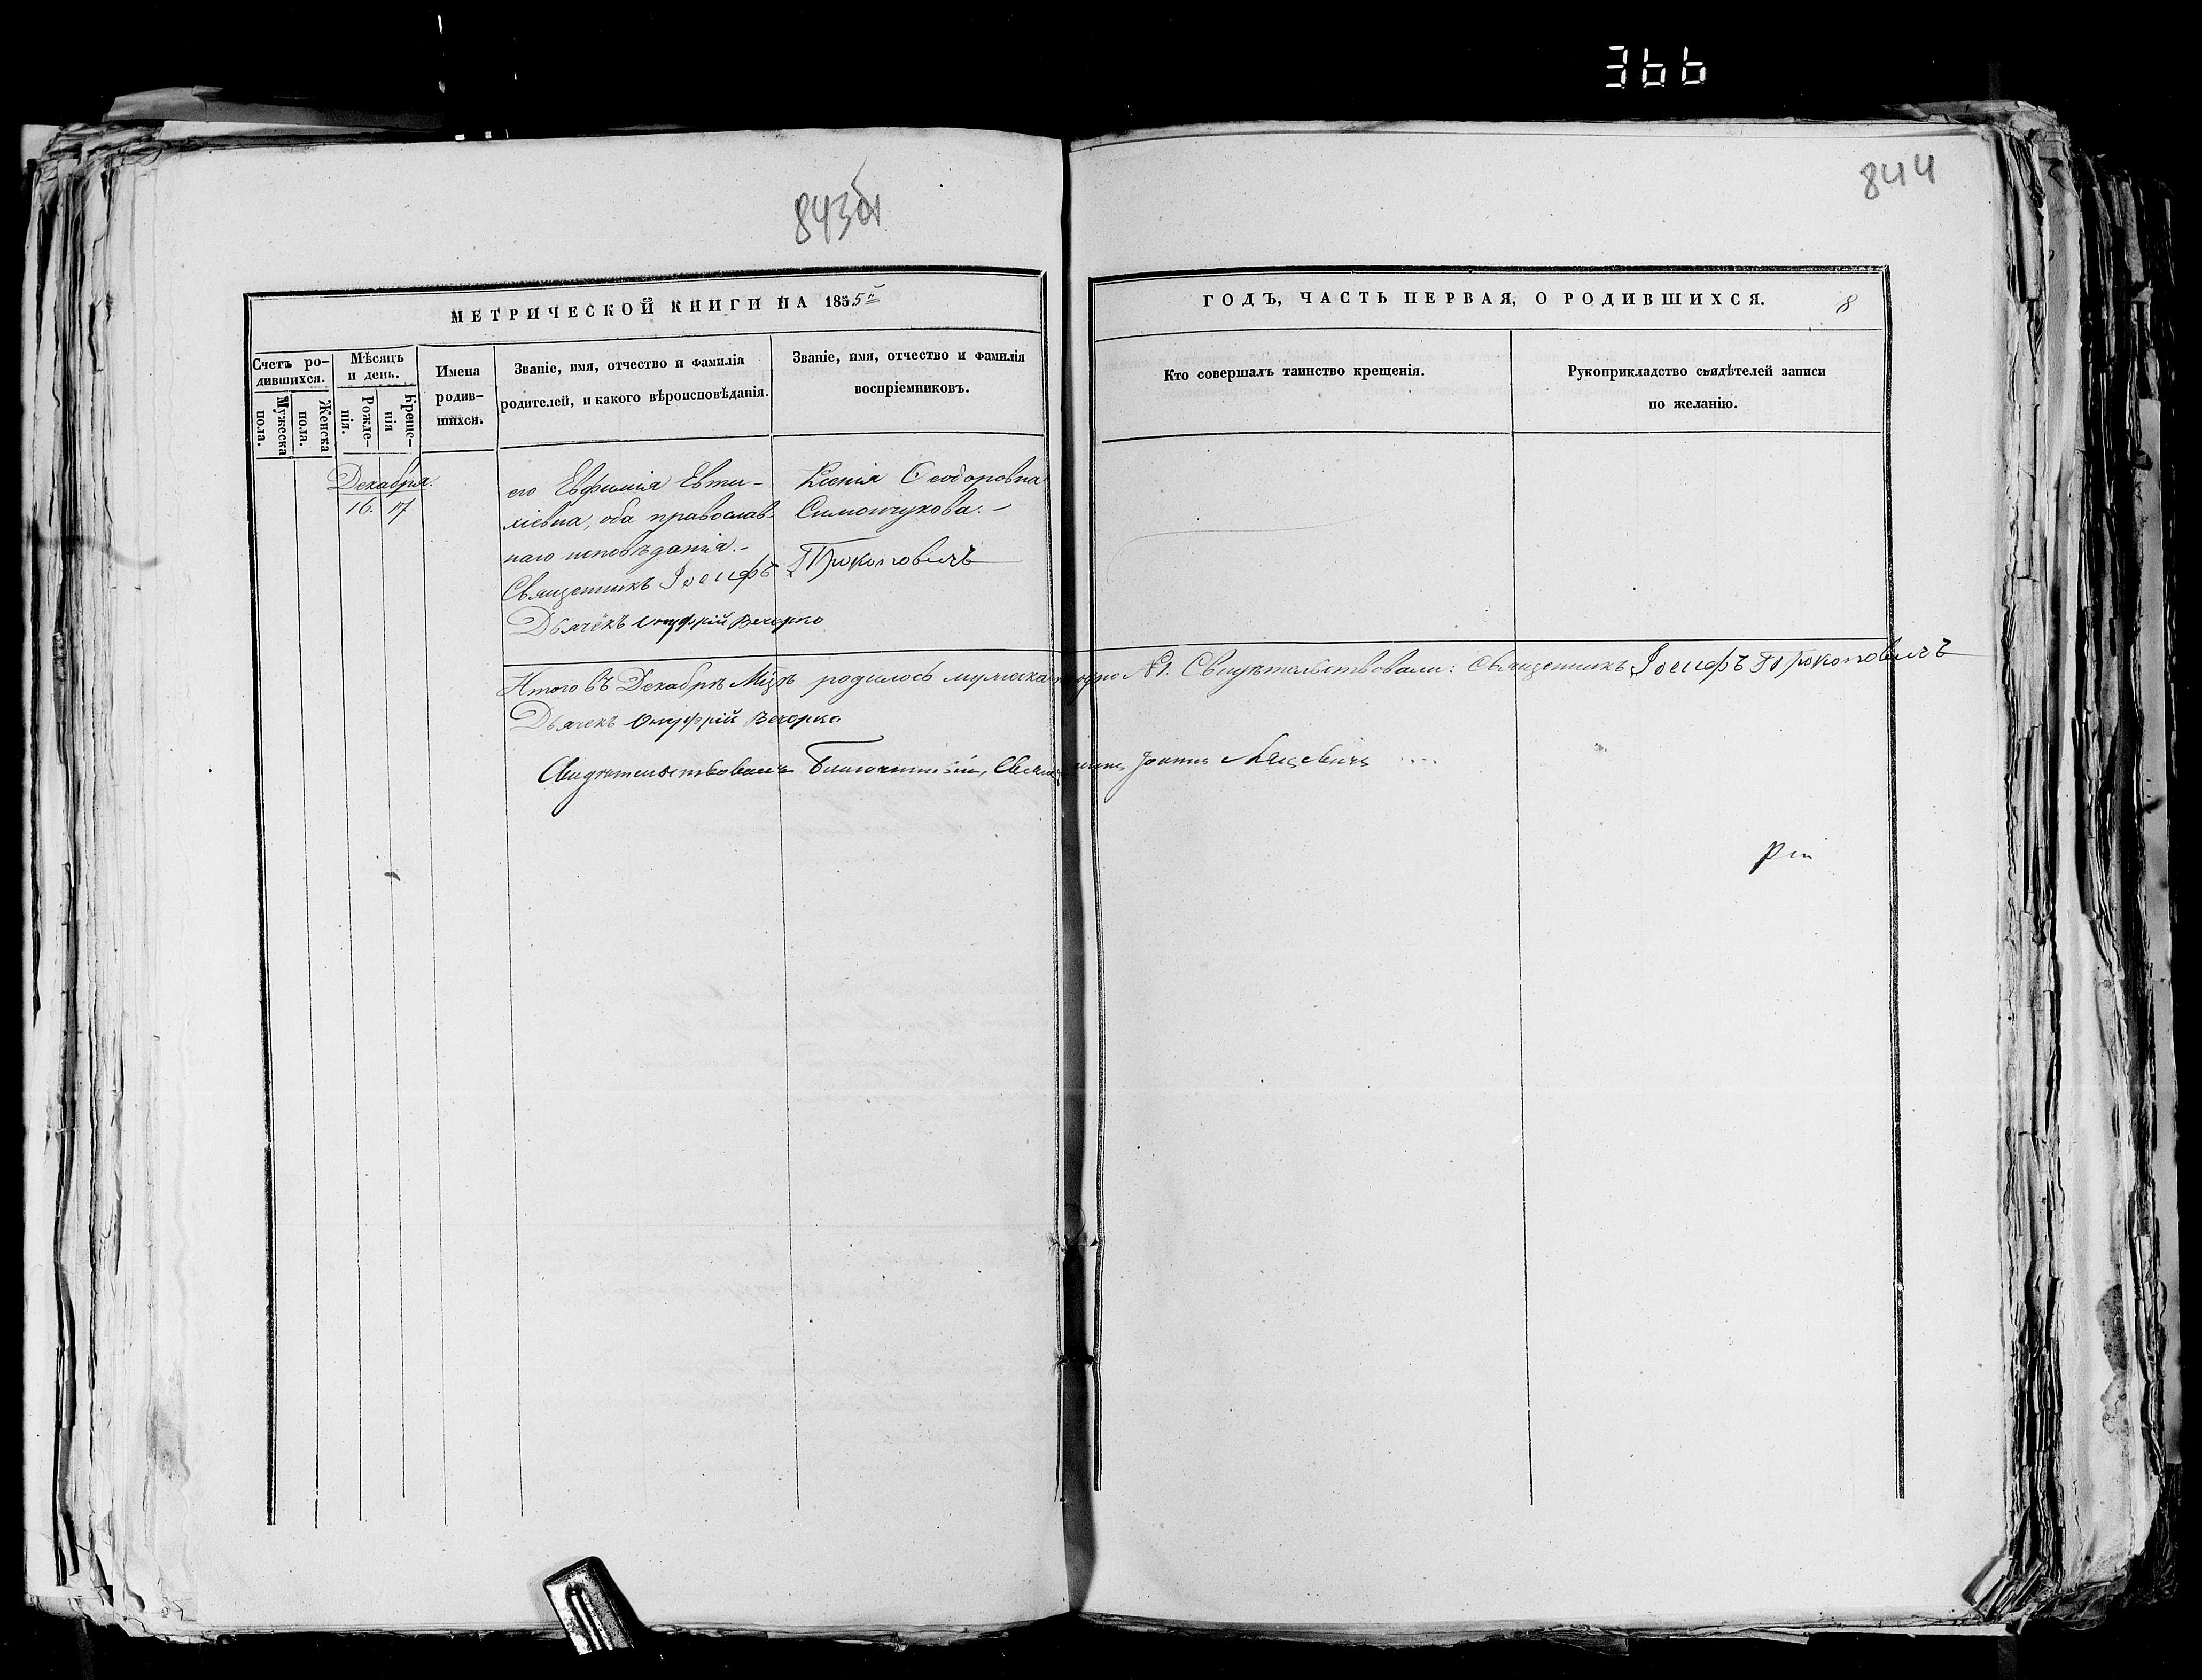 366
843об
844
МЕТРИЧЕСКОЙ КНИГИ НА 1855й
ГОДЪ, ЧАСТЬ ПЕРВАЯ, О РОДИВШИХСЯ.
8
Счетъ ро-
дившихся.
Мужеска
пола.
Женска
пола.
Мѣсяцъ
и день.
Рожде-
нія.
Креще-
нія
Имена
родив-
шихся.
Званіе, имя, отчество и фамилія
родителей, и какого вѣроисповѣданія.
Званіе, имя, отчество и фамилія
воспріемниковъ.
Кто совершалъ таинство крещенія.
Рукоприкладство свидѣтелей записи
по желанію.
Декабря.
16. 17
его Евфимія Евти-
хіевна, оба православ-
наго исповѣданія.-
Ксенія Ѳеодоровна
Симончукова.-
Священникъ Іосифъ Прокоповичъ
Дьячекъ Онуфрій Вечорко
Итого въ Декабрѣ Мцѣ родилось мужеска №1. Свидѣтельствовали: Священникъ Іосифъ Прокоповичъ
Дьячекъ Онуфрій Вечорко
Свидѣтельствовалъ Благочинный, Священникъ Іоаннъ